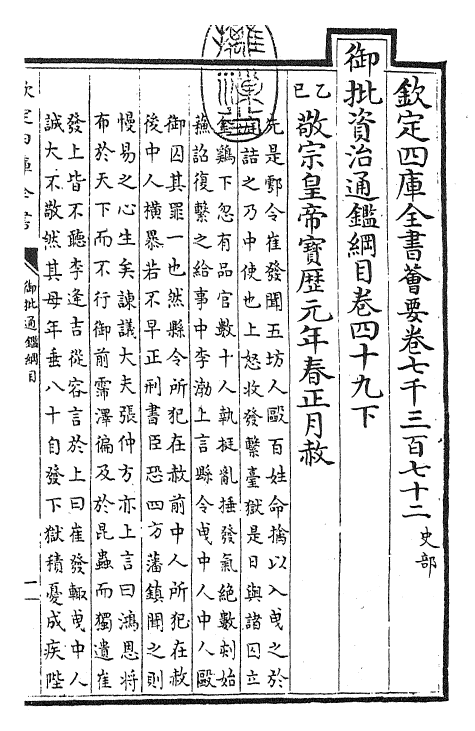 欽定四庫全書薈要卷七千三百七十二 史部
御批資治通鑑綱目卷四十九下
乙巳 敬宗皇帝寶歷元年春正月赦
先是鄠令崔發聞五坊人毆百姓命擒以入曵之於
詰之乃中使也上怒收發繫臺獄是日與諸囚立
金鷄下忽有品官數十人執梃亂捶發氣絶數刻始
蘇詔復繫之給事中李渤上言縣令曵中人中人毆
御囚其罪一也然縣令所犯在赦前中人所犯在赦
後中人橫暴若不早正刑書臣恐四方藩鎮聞之則
慢易之心生矣諫議大夫張仲方亦上言曰鴻恩將
布於天下而不行御前霈澤徧及於昆蟲而獨遺崔
發上皆不聽李逢吉從容言於上曰崔發輒曵中人
誠大不敬然其母年垂八十自發下獄積憂成疾陛
欽定四庫全書
御批通鑑綱目
一